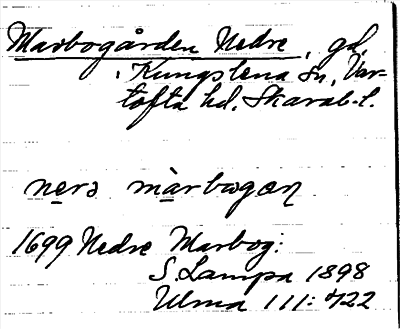 Marbogården Nedre, gd,
Kungslena sn, Var-
tofta hd. Skarab. l.
nerə màrbogæn
1699 Nedre Marbog:
S. Lampa 1898
Ulma 111:422